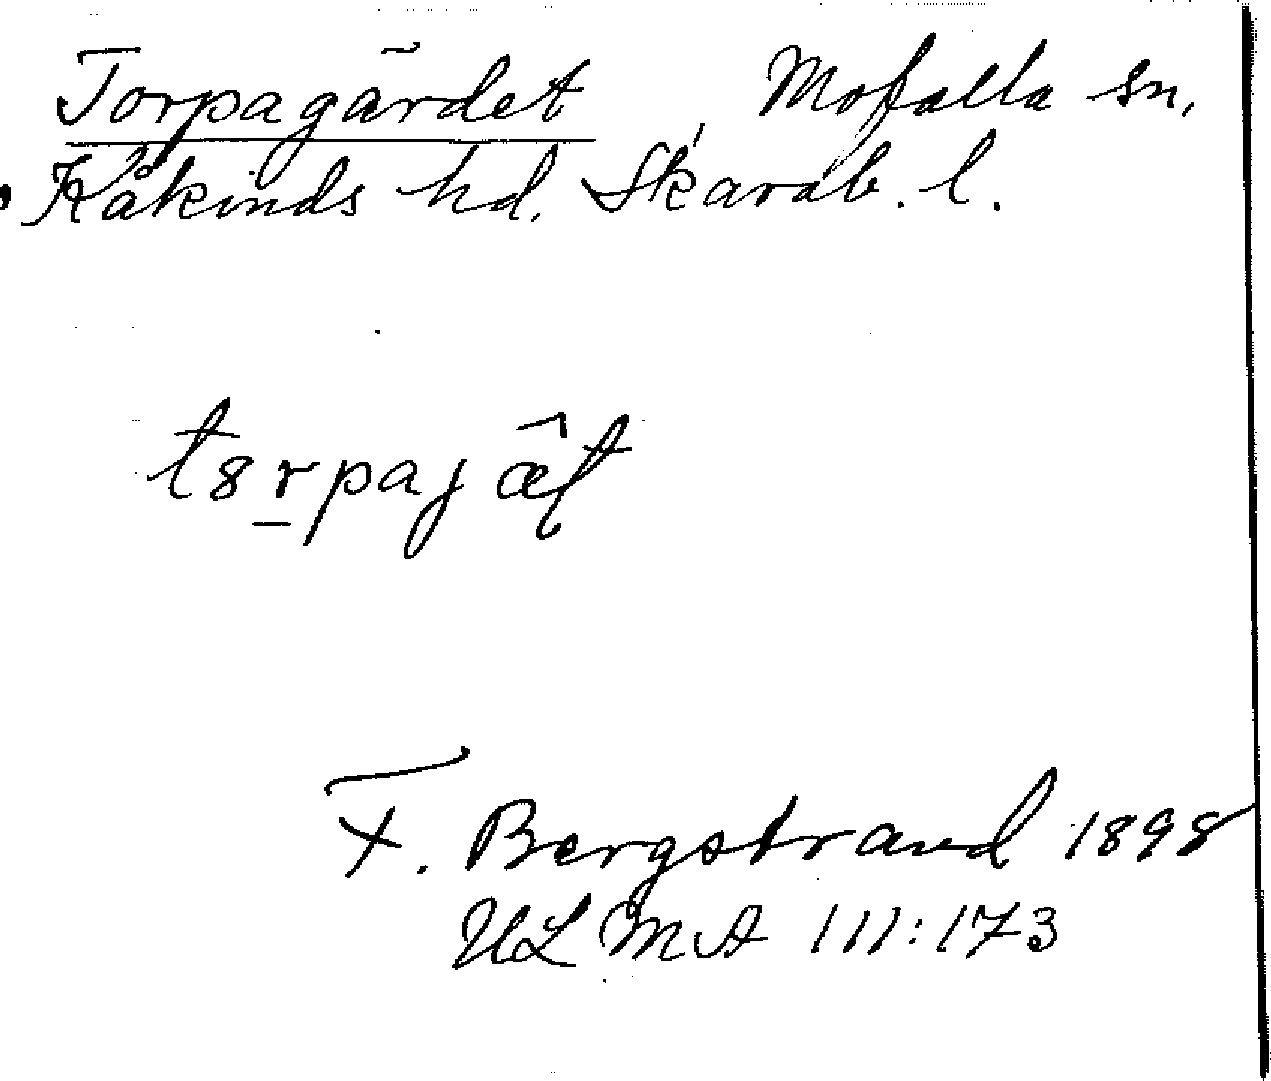 Torpagärdet, Mofalla sn,
Kåkinds hd. Skarab. l.
t8r̲pajæ̂ƭ
F. Bergstrand 1898
ULMA 111:173